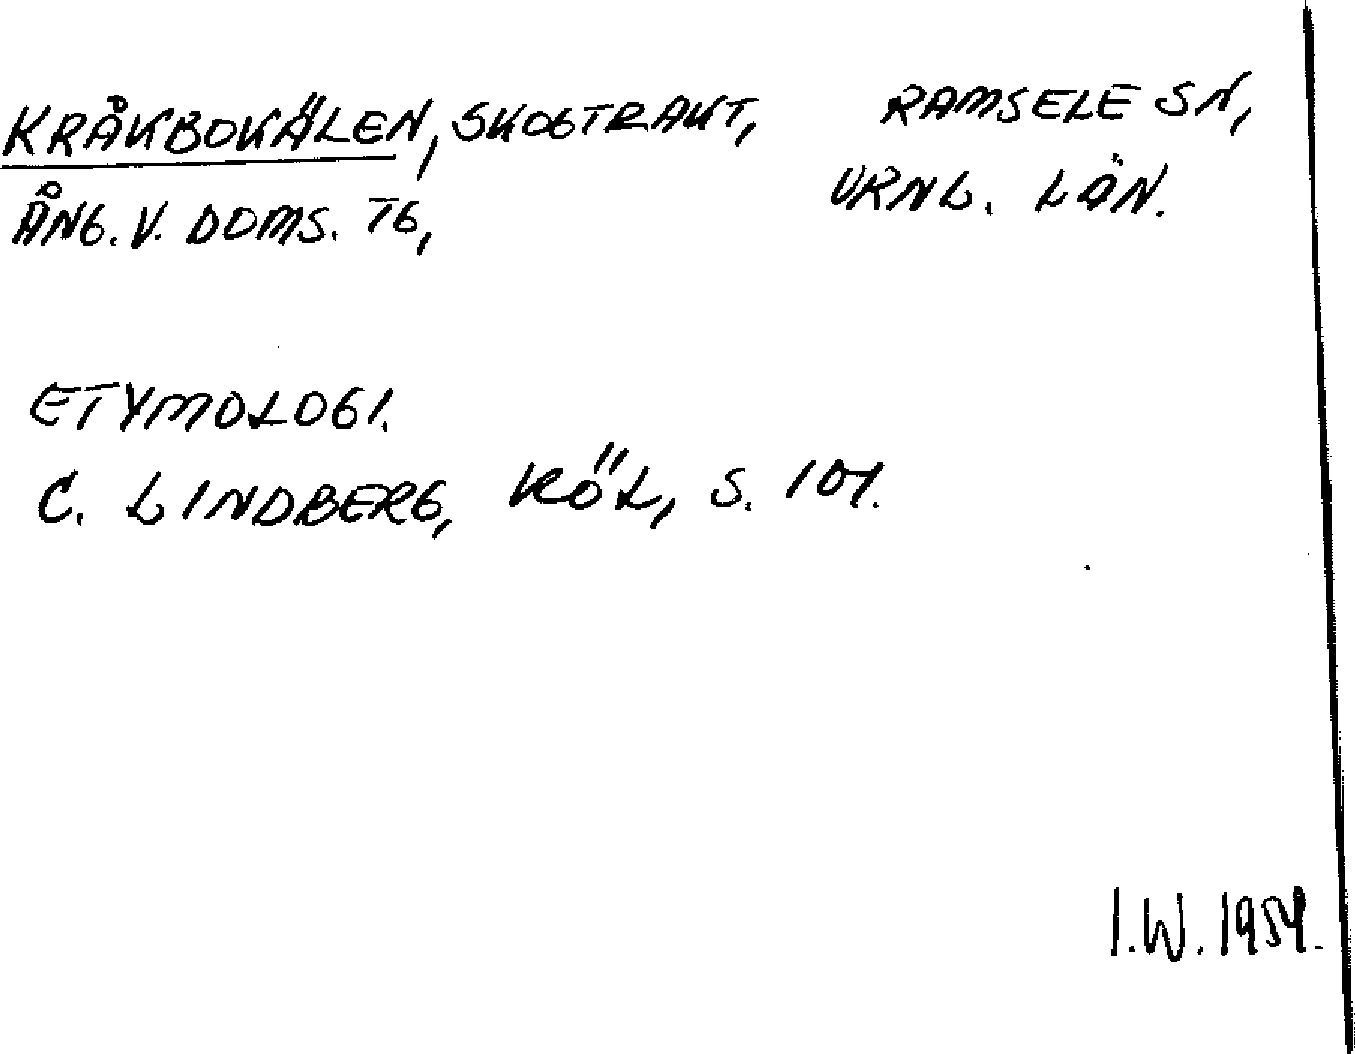 KRÅKBOKÄLEN, SKOGTRAKT, RAMSELE SN,
ÅNG. V. DOMS. TG, VRNL. LÄN.
ETYMOLOGI.
C. LINDBERG, KÖL, S.
I.W. 1954.